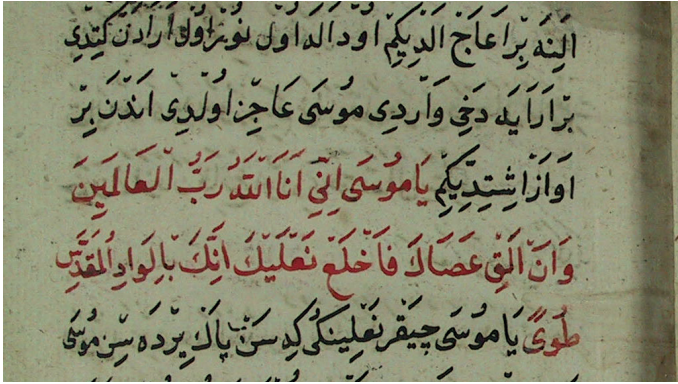 اَلِنَه بِرْ اَغَاجْ اَلْدِيكِمْ اُودْ اَلَه اُولْ نُورْ اُولْ اَرَادَنْ كِتْدِى
بِرْ اَرَايَه دَخِى وَارْدِى مُوسَى عَاجِزْ اُولْدِى اَنْدَنْ بِرْ
اَوَازْ اِشِتْدِيكِمْ يَا مُوسَى اِنِّي اَنَا اللَّهُ رَبُّ الْعَالَمِينَ
وَاَنْ اَلْقِ عَصَاكَ فَاخْلَعْ نَعْلَيْكَ اِنَّكَ بِالْوَادِ الْمُقَدَّسِ
طُوًى يَا مُوسَى چِيقَرْ نَعْلِينِكِى كِه سَنْ پَاكْ يِرْدَه سِنْ مُوسَى